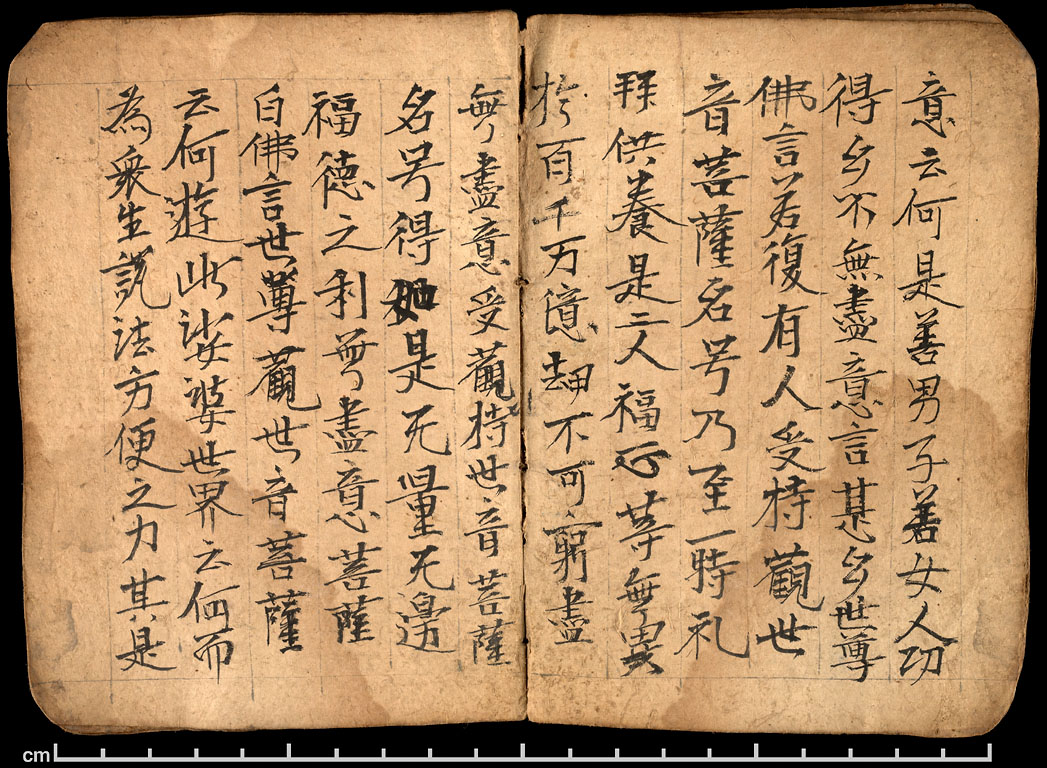 意云何是善男子善女人功
得多不無盡意言甚多世尊
佛言若復有人受持觀世
音菩薩名号乃至一時礼
拜供養是二人福正等無異
於百千万億劫不可窮盡
無盡意受觀持世音菩薩
名号得如是无量无邊
福德之利無盡意菩薩
白佛言世尊觀世音菩薩
云何遊此娑婆世界云何而
為衆生說法方便之力其是
cm